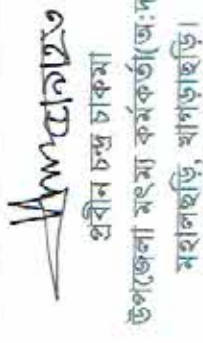 প্রবীন চন্দ্র চাকমা
উপজেলা মৎস্য কর্মকর্তা(অ:দ
মহালছড়ি, খাগড়াছড়ি।